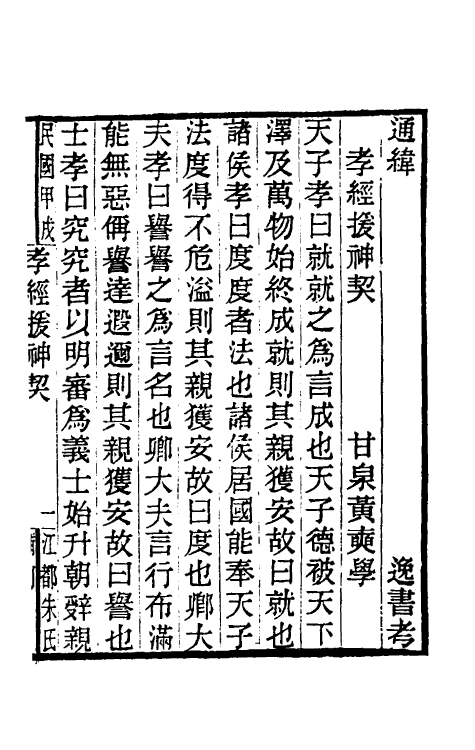 通緯　逸書考
孝經援神契　甘泉黃奭學
天子孝曰就就之為言成也天子德被天下
澤及萬物始終成就則其親獲安故曰就也
諸侯孝曰度度者法也諸侯居國能奉天子
法度得不危溢則其親獲安故曰度也卿大
夫孝曰譽譽之為言名也卿大夫言行布滿
能無惡稱譽達遐邇則其親獲安故曰譽也
士孝曰究究者以明審為義士始升朝辭親
民國甲戌　孝經援神契　一　江都朱氏